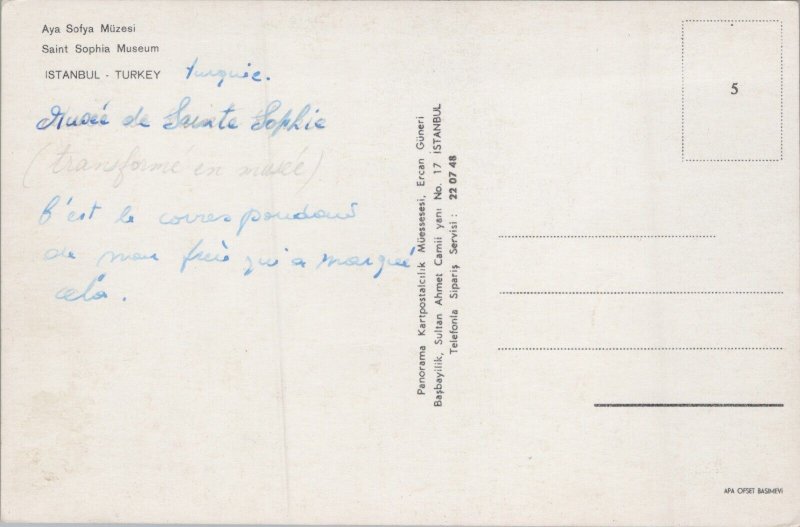 Aya Sofya Müzesi
Saint Sophia Museum
ISTANBUL - TURKEY turquie.
Musée de Sainte Sophie
(transformé en musée)
C'est le correspondant
de mon frère qui a marqué
cela.
Panorama Kartpostalcılık Müessesesi, Ercan Güneri
Başbayilik, Sultan Ahmet Camii yanı No. 17 İSTANBUL
Telefonla Sipariş Servisi : 22 07 48
5
APA OFSET BASIMEVİ